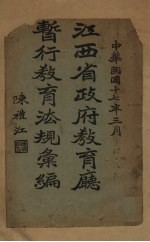 中華民國十七年三月
江西省政府教育廳
暫行教育法規彙編
陳禮江